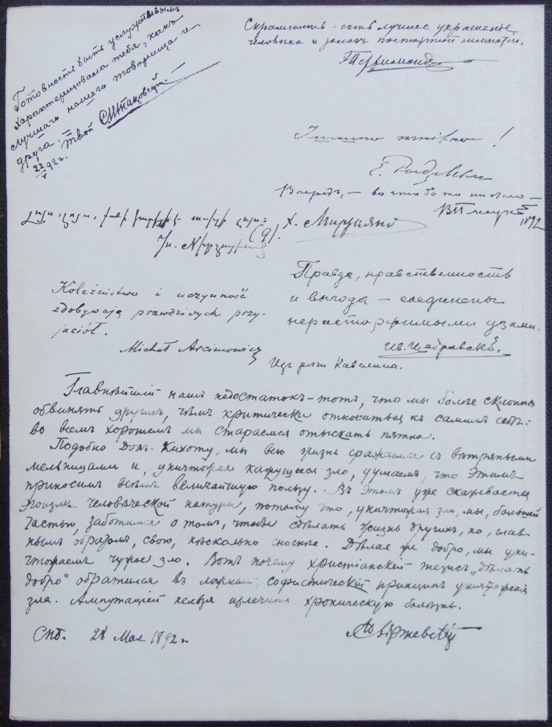 Готовность быть услужливымъ
характеризовала тебя, какъ
лучшаго нашего товарища и
друга. Твой
Скромность – есть лучшее украшеніе
человѣка и залогъ
!
Впередъ, – во что бо то ни стало –
1892
Х. Мирзьянъ
Правда, нравственность
и выгода – соединены
нерасторжимыми узами.
Изъ рѣчи Кавелина.
Koleżeństwo i uczynność
zdobywają prawdziwych przy-
jaciół.
Michał Arcimowicz
Главнѣйшій нашъ недостатокъ – тотъ, что мы болѣе склонны
обвинять другихъ, чѣмъ критически относиться къ самимъ себѣ:
во всемъ хорошемъ мы стараемся отыскать пятна.
Подобно Донъ-Кихоту, мы всю жизнь сражаемся съ вѣтряными
мельницами и, уничтожая кажущееся зло, думаемъ, что этимъ
приносимъ всѣмъ величайшую пользу. Въ этомъ уже сказывается
эгоизмъ человѣческой натуры, потому что, уничтожая зло, мы, большей
частью, заботимся о томъ, чтобы сдѣлать жизнь другихъ, но, глав-
нымъ образомъ, свою, нѣсколько сноснѣе. Дѣлая же добро, мы уни-
чтожаемъ чужое зло. Вотъ почему христіанскій тезисъ „дѣлать
добро" обратился въ ложный, софистическій принципъ уничтоженія
зла. Ампутаціей нельзя излечить хроническую болѣзнь.
Спб. 28 Мая 1892 г.